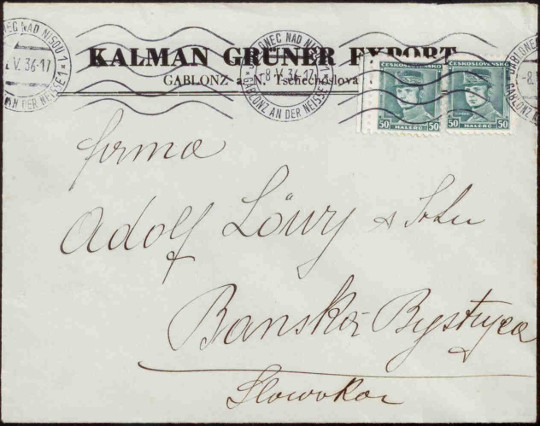 KALMAN GRÜNER EXPORT
GABLONZ a. N. Tschechoslova
NEC NAD NISOU
V. 36-17
AN DER NEISSE 1
GABLONEC NAD NISOU 1
8. V. 36-17
GABLONZ AN DER NEISSE
ČESKOSLOVENSKO
50 HALÉŘŮ 50
ČESKOSLOVENSKO
50 HALÉŘŮ 50
firma
Adolf Löwy & Sohn
Banská Bystryca
Slowakai